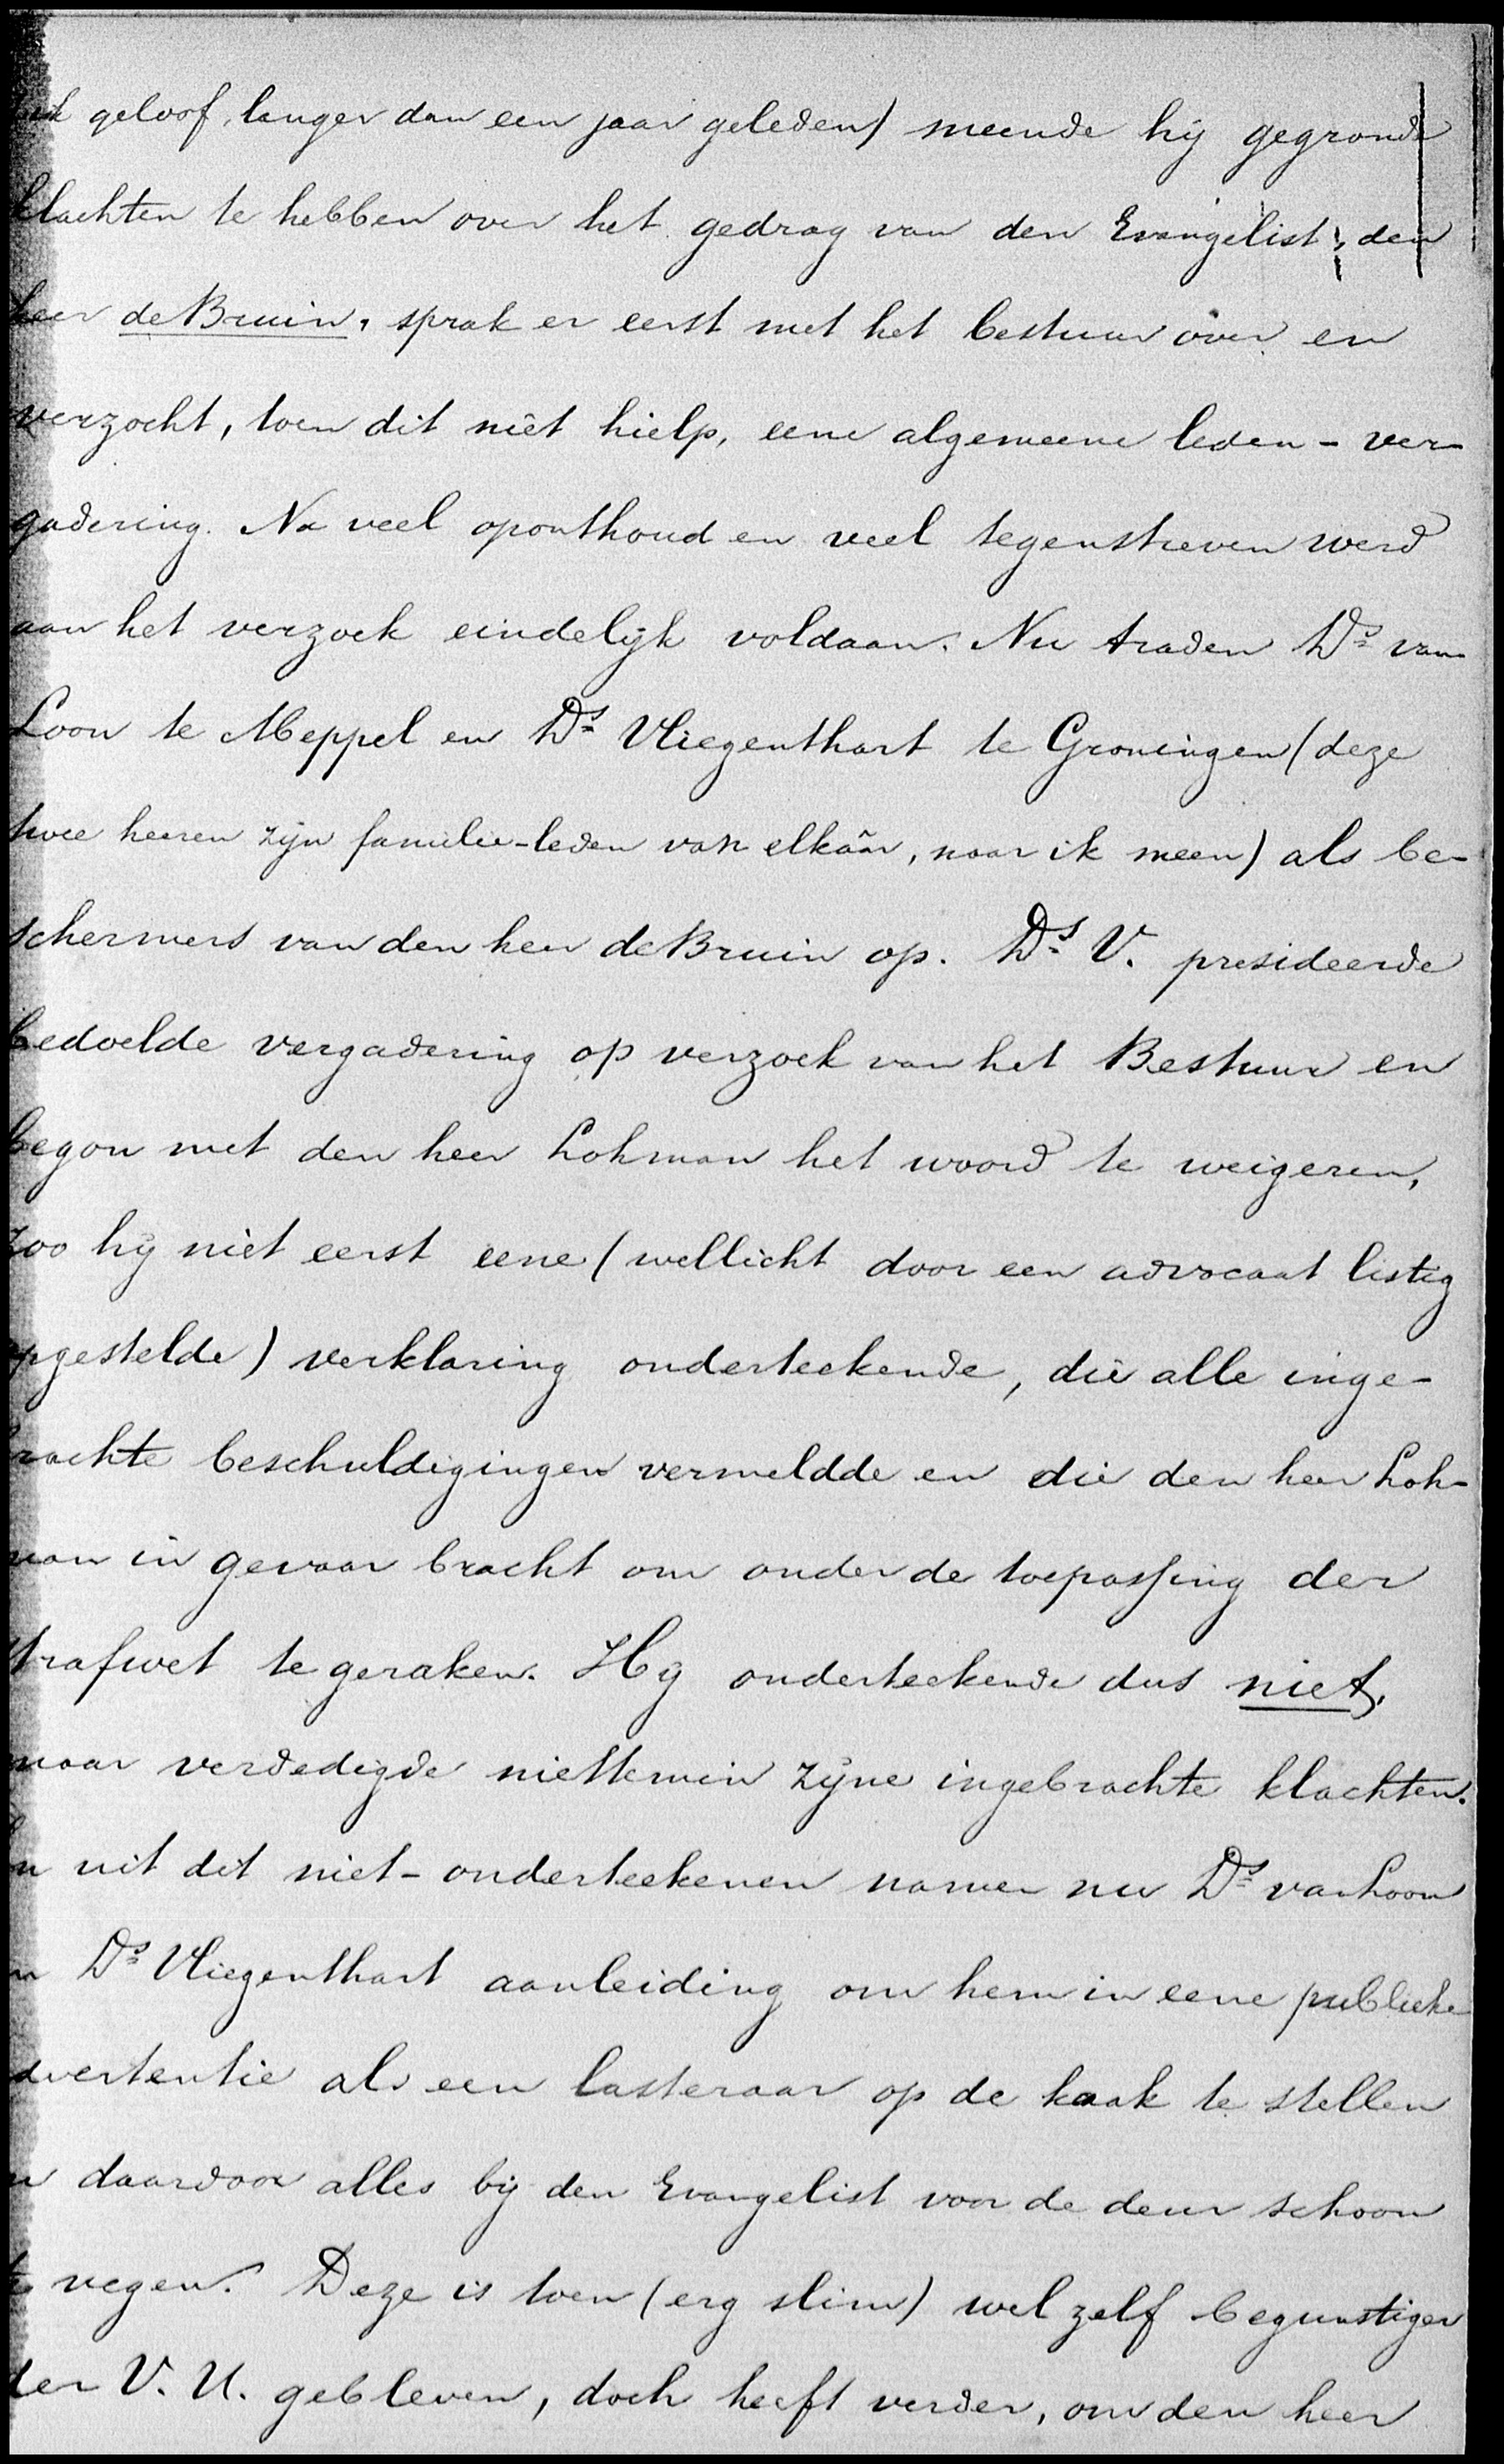 ik geloof, langer dan een jaar geleden) meende hij gegronde
klachten te hebben over het gedrag van den Evangelist, den
heer de Bruin, sprak er eerst met het bestuur over en
verzocht, toen dit niet hielp, eene algemeene leden-ver-
gadering. Na veel oponthoud en veel tegenstreven werd
aan het verzoek eindelijk voldaan. Nu traden Ds van
Loon te Meppel en Ds Vliegenthart te Groningen (deze
twee heeren zijn familie-leden van elkaâr, naar ik meen) als be-
schermers van den heer de Bruin op. Ds V. presideerde
bedoelde vergadering op verzoek van het Bestuur en
begon met den heer Lohman het woord te weigeren,
zoo hij niet eerst eene (wellicht door een advocaat listig
pgestelde) verklaring onderteekende, die alle inge-
rachte beschuldigingen vermeldde en die den heer Loh-
man in gevaar bracht om onder de toepassing der
trafwet te geraken. Hij onderteekende dus niet,
maar verdedigde niettemin zijne ingebrachte klachten.
En uit dit niet-onderteekenen namen nu Ds van Loon
n Ds Vliegenthart aanleiding om hem in eene publieke
dvertentie als een lasteraar op de kaak te stellen
n daardoor alles bij den Evangelist voor de deur schoon
te vegen. Deze is toen (erg slim) wel zelf begunstiger
der V. U. gebleven, doch heeft verder, om den heer